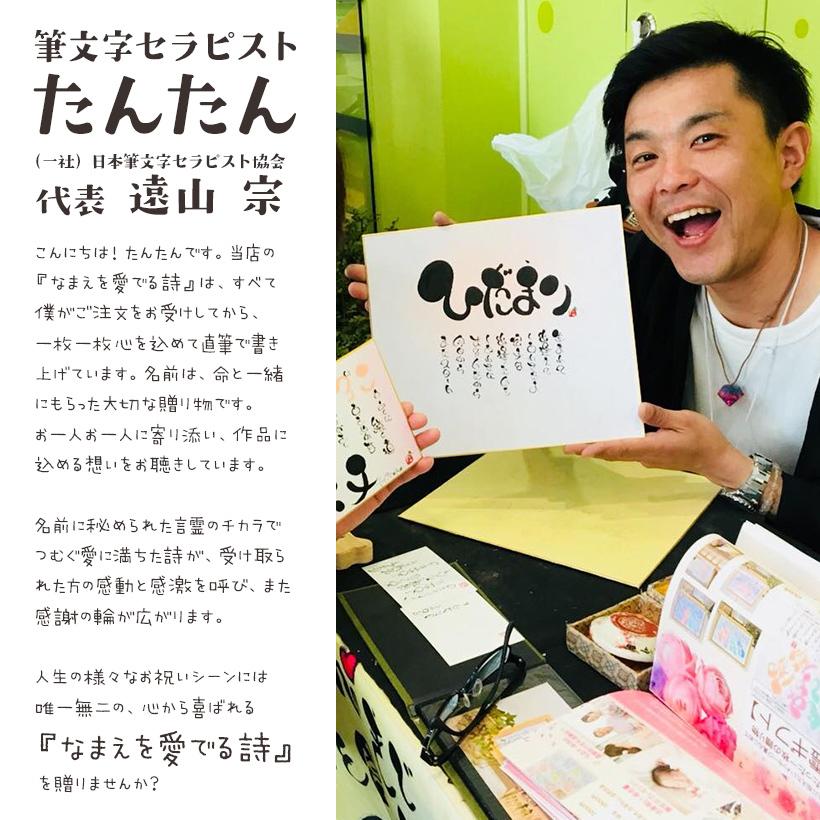 筆文字セラピスト
たんたん
(一社) 日本筆文字セラピスト協会
代表 遠山 宗
こんにちは！たんたんです。当店の
『なまえを愛でる詩』は、すべて
僕がご注文をお受けしてから、
一枚一枚心を込めて直筆で書き
上げています。名前は、命と一緒
にもらった大切な贈り物です。
お一人お一人に寄り添い、作品に
込める想いをお聴きしています。
名前に秘められた言霊のチカラで
つむぐ愛に満ちた詩が、受け取ら
れた方の感動と感激を呼び、また
感謝の輪が広がります。
人生の様々なお祝いシーンには
唯一無二の、心から喜ばれる
『なまえを愛でる詩』
を贈りませんか？
ひだまり